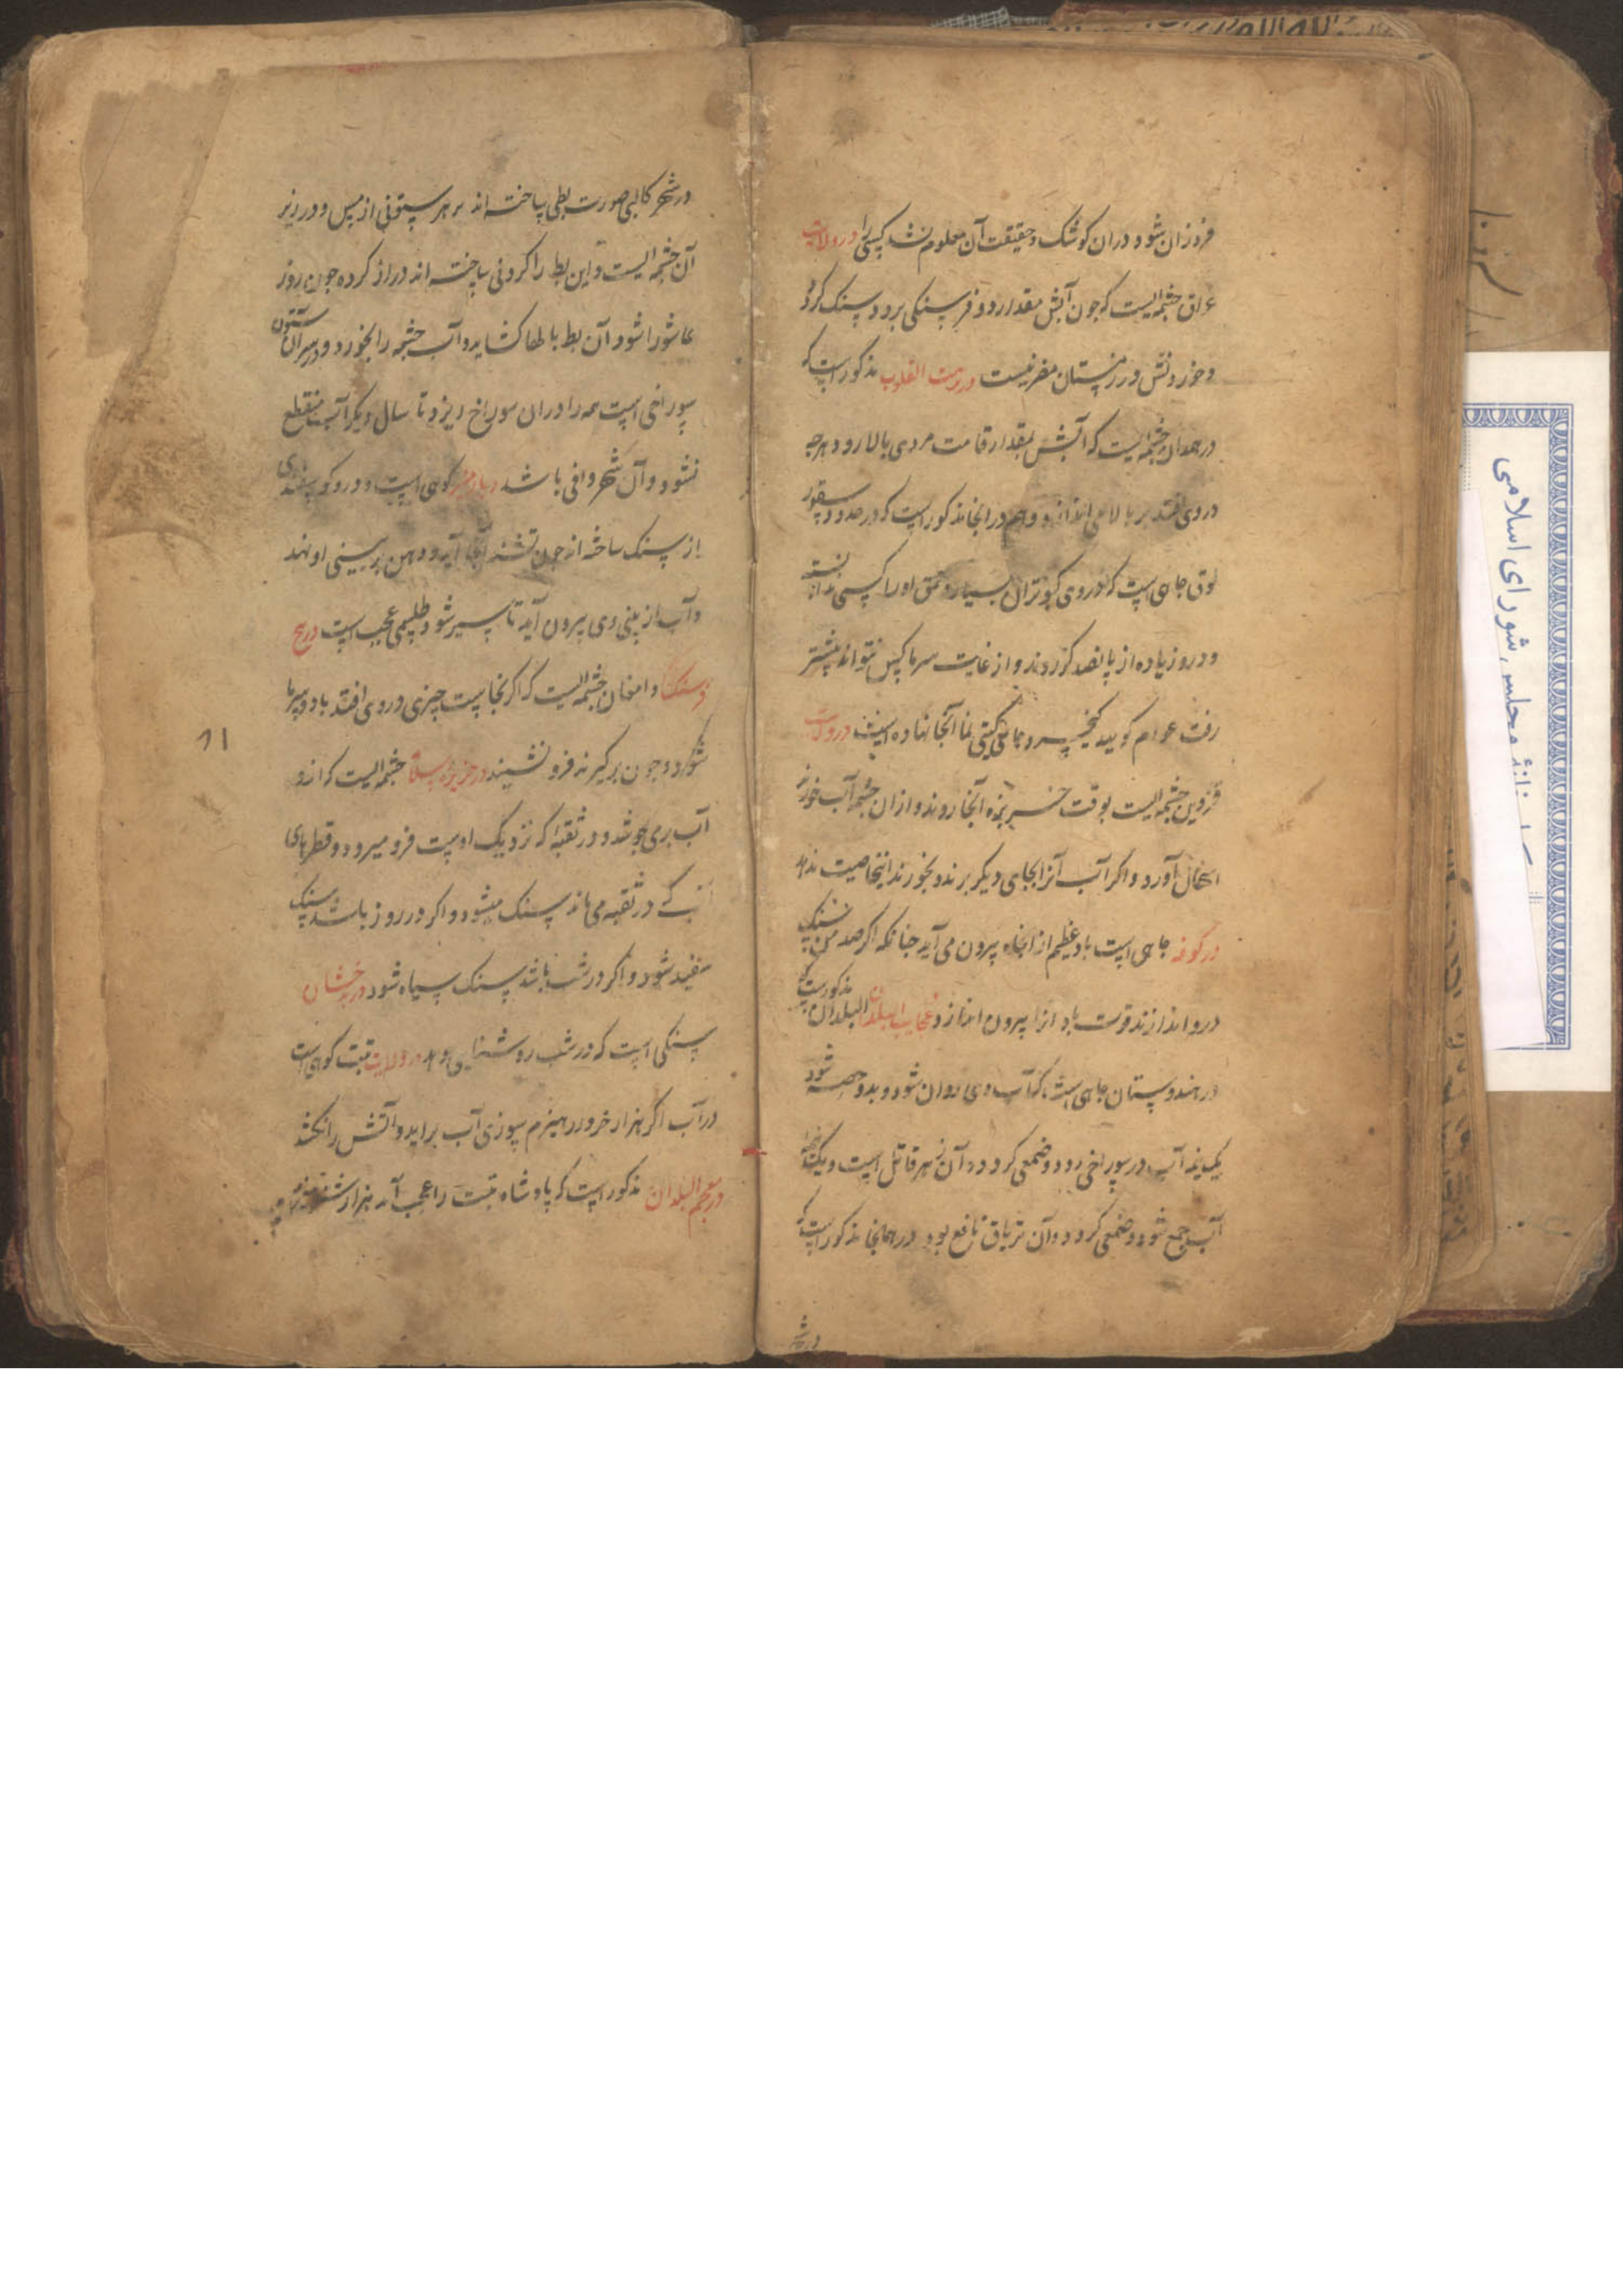 فروزان شود و دران کوشک و حقیقت آن معلوم نشد کسی را در ولایت
عراق چشمه‌ایست که چون آبش مقدار دو فرسنکی برود سنک کردد
و خوردنش در زمستان مضر نیست در نزهت القلوب مذکور است که
در همدان چشمه‌ایست که آبش بمقدار قامت مردی بالا رود و هرچه
در وی افتد بر بالا می اندازد و هم در انجا مذکور است که در حدود سقور
لوق چاهی است که در وی کبوتران بسیار و عمق او را کسی ندانسته
و در و زیاده از پانصد کز روند و از غایت سرما کس نتواند پیشتر
رفت عوام کویند کیخسرو جام کیتی نما آنجا نهاده است در ولایت
قزوین چشمه‌ایست بوقت خربزه آنجا روند و ازان چشمه آب خورند
اسهال آورد و اکر آب آنرا بجای دیکر برند و بخورند اینخاصیت ندهد
در کوفه چاهی است باد عظیم از انچاه بیرون می آید چنانکه اکر صد من سنک
درو اندازند قوت باد انرا بیرون اندازد و عجایب البلدان مذکورست که
در هندوستان چاهی است که آب وی روان شود و بدو حصه شود
یک نیمه آب در سوراخی رود و ضمغی کردد و آن زهر قاتل است و یک نیمه
آب جمع شود و ضمغی کردد و آن تریاق نافع بود در همانجا مذکور است که
در شهر
در شهر کالبی صورت بطی ساخته اند بر سر ستونی از مس و در زیر
آن چشمه‌ایست و این بط را کردنی ساخته اند دراز کرده چون روز
عاشورا شود آن بط بالها کشاید و آب چشمه را بخورد و در سر آن ستون
سوراخی است همه را دران سوراخ ریزد تا سال دیکر آب منقطع
نشود و آن شهر وافی باشد دیار مصر کوهی است و درو کوسفندی
از سنک ساخته اند چون تشنه آنجا آید و دهن بر بینی او نهد
و آب از بینی وی بیرون آید تا سیر شود طلسمی عجب است در پنج
فرسنک دامغان چشمه‌ایست که اکر نجاست چیزی در وی افتد باد و سرما
شود و چون برکیرند فرو نشیند در جزیره چشمه‌ایست که ازو
آب بر می جوشد و در ثقبه که نزدیک اوست فرو میرود و قطرهای
آب که در ثقبه می ماند سنک میشود و اکر در روز باشد سنک
سفید شود و اکر در شب باشد سنک سیاه شود در بدخشان
سنکی است که در شب روشنایی دهد در ولایت تبت کوهی است
در آب اکر هزار خرور هیزم سوزی آب براید و آتش را بکشد
در معجم البلدان مذکور است که پادشاه تبت را عجب آمد هزار شتر
۱۱
مجلس شورای اسلامی